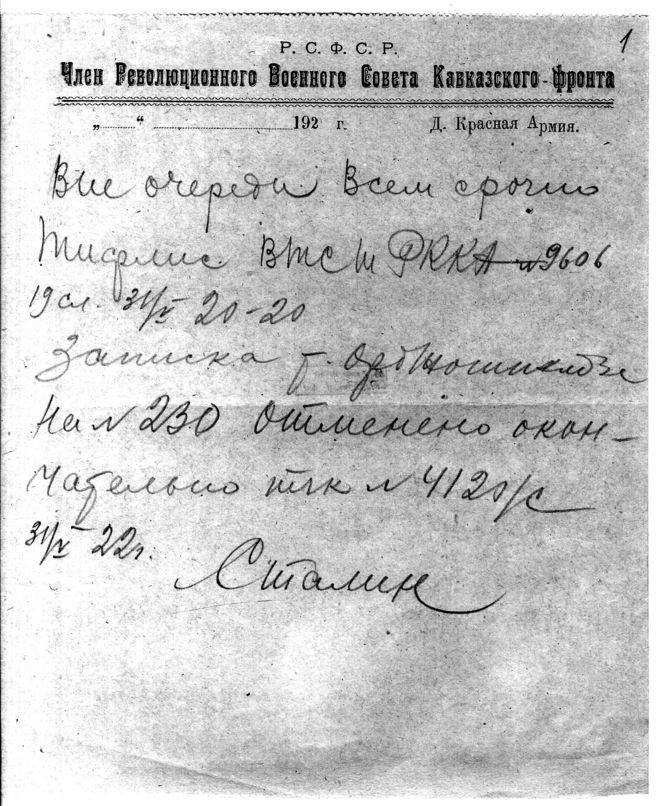 1
Р. С. Ф. С. Р.
Член Революционного Военного Совета Кавказского фронта
„ “ 192 г. Д. Красная Армия.
Вне очереди Всем срочно
Тифлис ВТС Ш РККА № 9606
19 сл. 31/V 20-20
Записка т. Орджоникидзе
На № 230 Отменено окон-
чательно тчк № 4120/с
31/V 22г.
Сталин